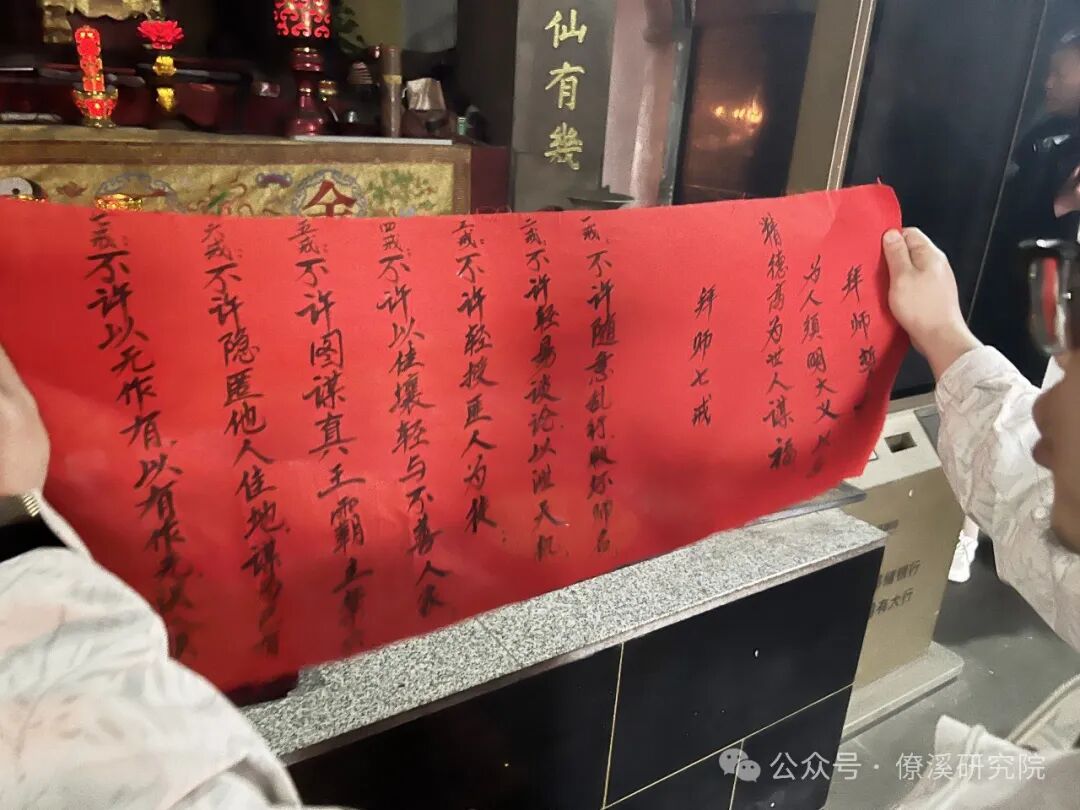 仙有幾
金
拜师
为人须明大义
精德高为世人谋福
拜师七戒
一戒:不许随意乱行败坏师名
二戒:不许轻易谈论以泄天机
三戒:不许轻授匪人为徒
四戒:不许以佳壤轻与不善人家
五戒:不许图谋真王霸
六戒:不许隐匿他人佳地谋
七戒:不许以无作有以有作无
银行
有大行
公众号·僚溪研究院